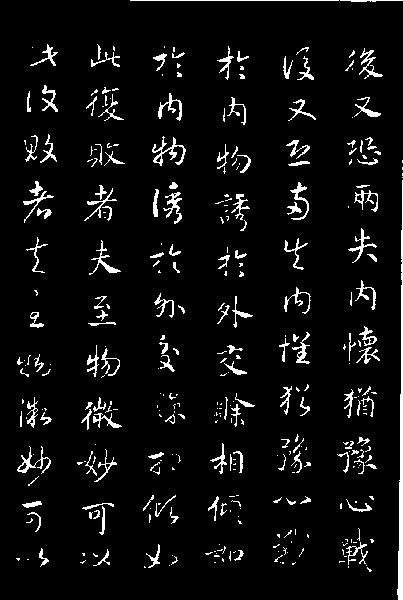 後又恐兩失內懷猶豫心戰
後又恐兩失內懷猶豫心戰
於內物誘於外交賒相傾如
於內物誘於外交賒相傾如
此復敗者夫至物微妙可以
此復敗者夫至物微妙可以